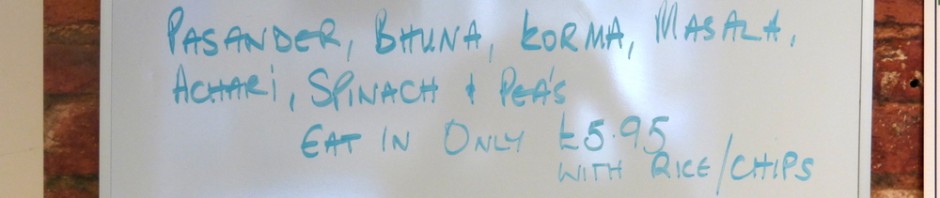 PASANDER, BHUNA, KORMA, MASALA,
ACHARI, SPINACH & PEA'S
EAT IN ONLY £5.95
WITH RICE/CHIPS